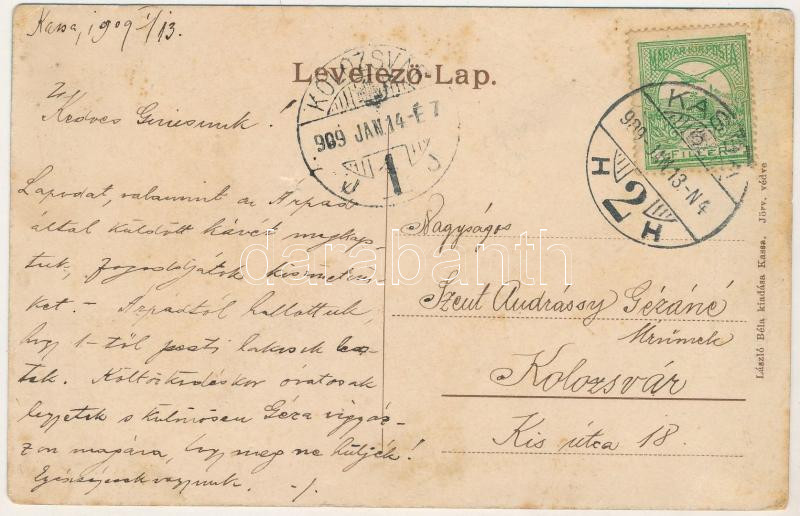 Kassa, 1909 I/13.
Levelező-Lap.
Kedves
Lapodat, valamint az Árpád
által küldött kávét megkap-
tuk, fogadjátok
ket. – Árpádtól hallottuk,
hogy 1-től pesti lakosok
tek. Költözködéskor óvatosak
legyetek s különösen Géza vigyáz-
zon magára, hogy meg ne hűljék!
Egészségesek vagyunk.
KOLOZSVÁR
909 JAN. 14-É 7
1
MAGYAR KIR. POSTA
FILLÉR
KASSA
909 JAN. 13-N4
H 2 H
Nagyságos
Szent Andrássy Gézáné
Úrnőnek
Kolozsvár
Kis utca 18.
László Béla kiadása Kassa. Törv. védve
darabanth